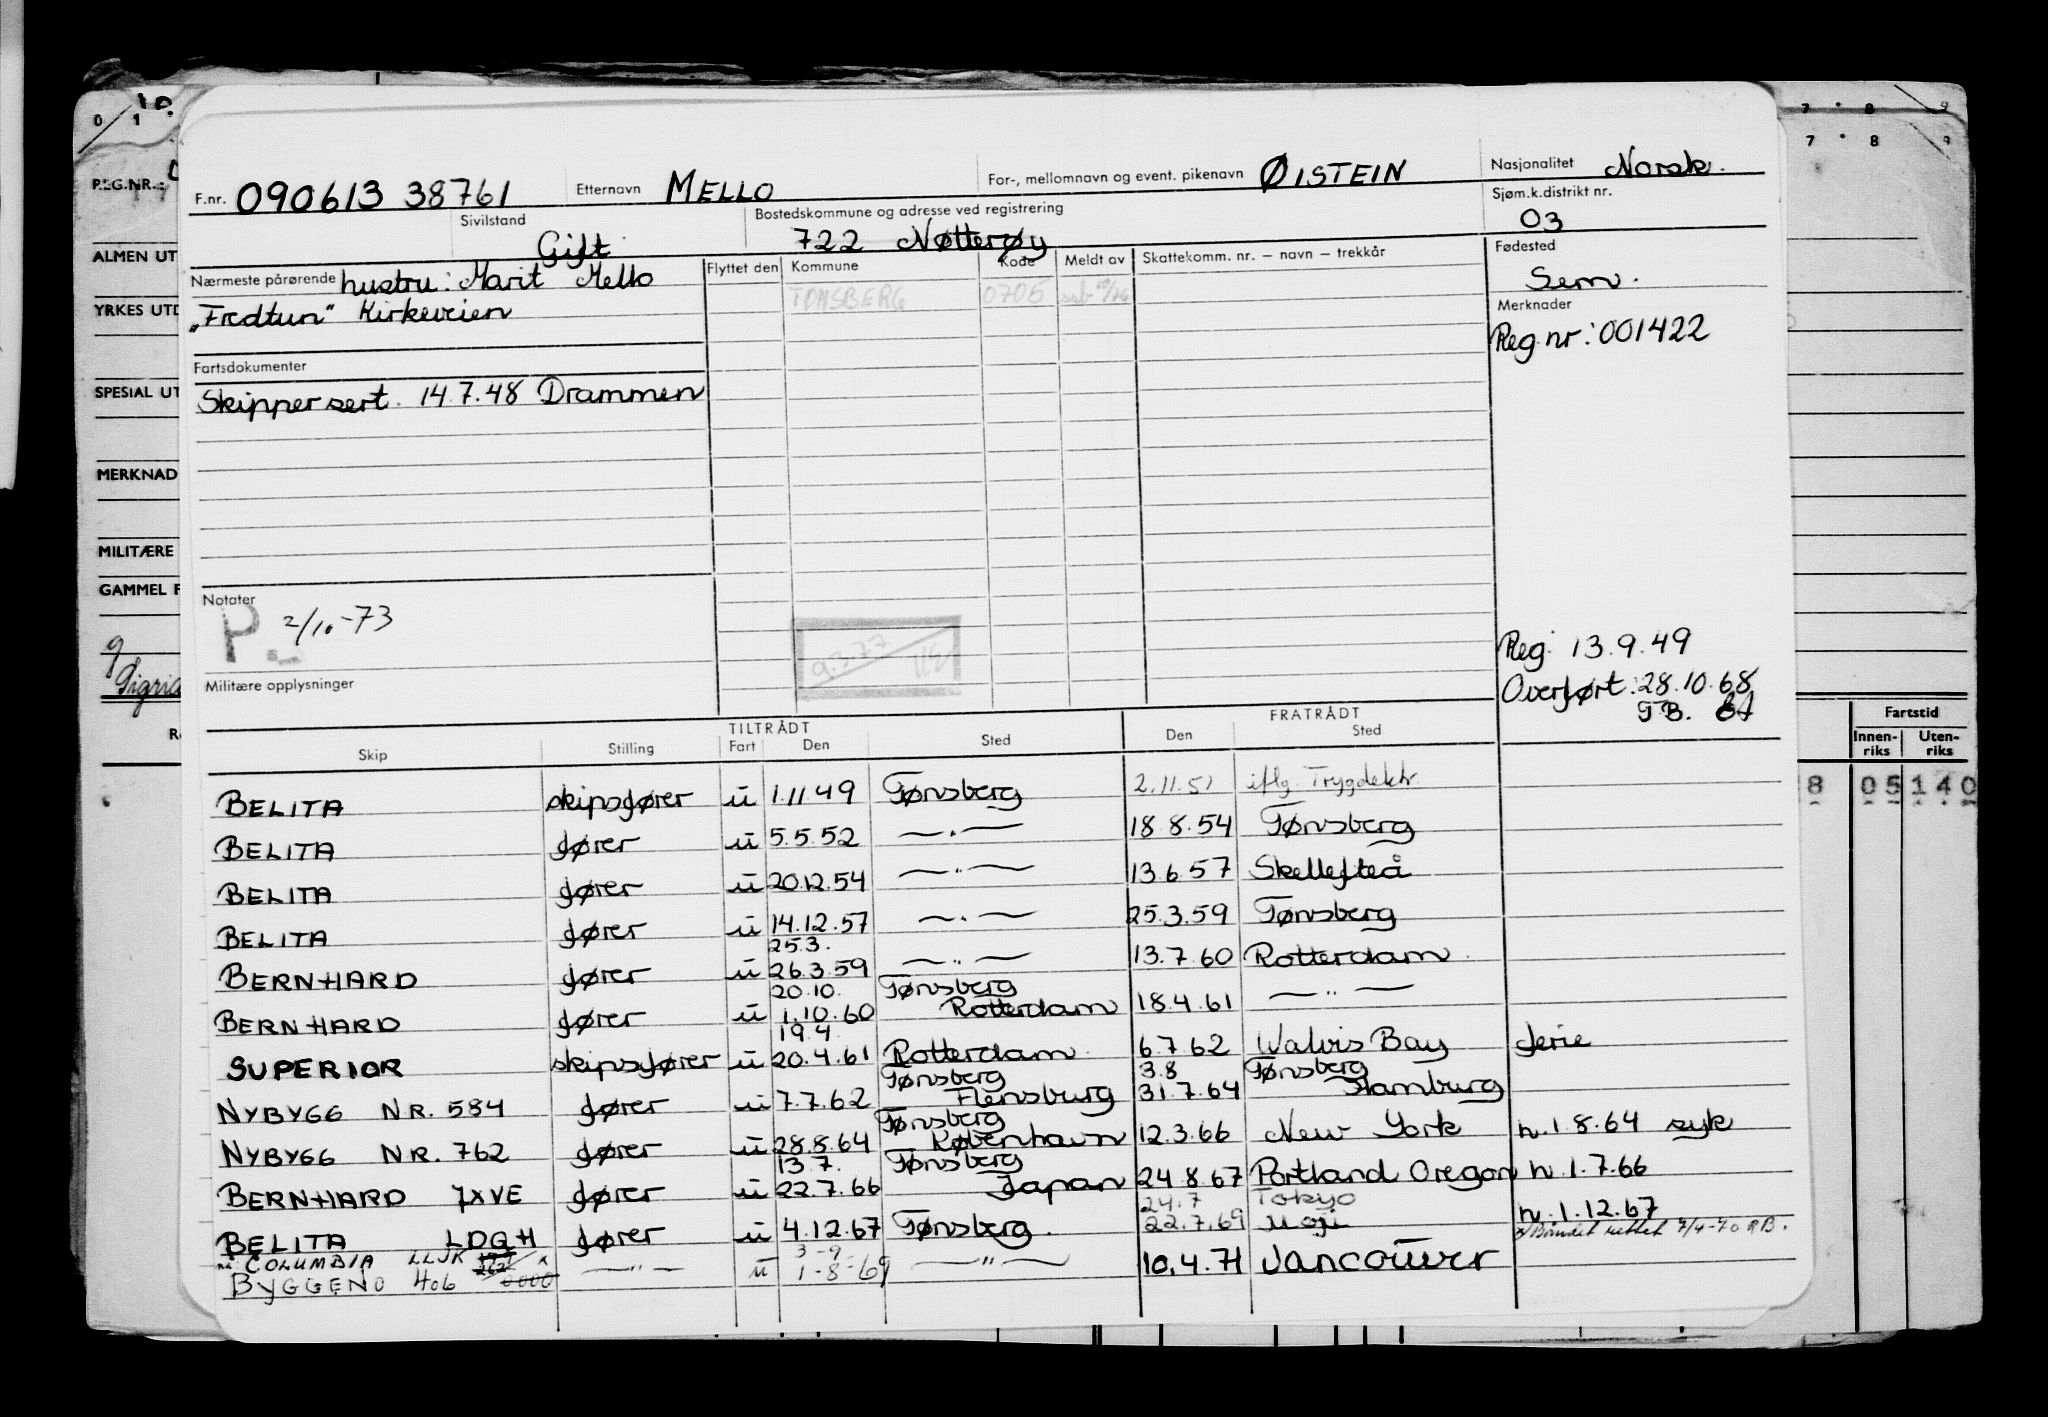 F.nr. 090613 38761 Etternavn MELLO For-, mellomnavn og event. pikenavn ØISTEIN Nasjonalitet Norsk.
Sivilstand Gift Bostedskommune og adresse ved registrering 722 Nøtterøy Sjøm.k.distrikt nr. 03
Nærmeste pårørende hustru: Marit Mello Flyttet den Kommune Kode Meldt av Skattekomm. nr. – navn – trekkår Fødested Sem.
"Fredtun" Kirkeveien TØNSBERG 0705 Merknader
Reg.nr: 001422
Fartsdokumenter
Skippersert. 14.7.48 Drammen
Notater
P. 2/10-73
9.3.77
Militære opplysninger
Reg. 13.9.49
Overført: 28.10.68
T.B.
TILTRÅDT FRATRÅDT
Skip Stilling Fart Den Sted Den Sted
BELITA skipsfører u 1.11 49 Tønsberg 2.11.51 iflg. Trygdektr.
BELITA fører u 5.5.52 —"— 18 8.54 Tønsberg
BELITA fører u 20.12.54 —"— 13.6 57 Skellefteå
BELITA fører u 14.12.57 —"— 25.3.59 Tønsberg
25.3.
BERNHARD fører u 26.3.59 —"— 13.7.60 Rotterdam
20.10. Tønsberg
BERNHARD fører u 1.10.60 Rotterdam 18.4.61 —"—
19.4.
SUPERIOR skipsfører u 20.4.61 Rotterdam 6.7.62 Walvis Bay ferie
Tønsberg 3.8 Tønsberg
NYBYGG NR. 584 fører u 7.7.62 Flensburg 31.7.64 Hamburg
Tønsberg
NYBYGG NR. 762 fører u 28.8.64 København 12.3.66 New York n.1.8.64 syk
13.7. Tønsberg
BERNHARD JXVE fører u 22.7.66 Japan 24.8.67 Portland Oregon n.1.7.66
24.7 Tokyo
BELITA LDQH fører u 4.12.67 Tønsberg. 22.7.69 Moji n.1.12.67
nå COLUMBIA LLJK 3-9- x/ Båndet rettet 7/4-70 RB.
BYGGENO 406 0000 —"— u 1-8-69 —"— 10.4.71 VANCOUVER
REG.NR.:
ALMEN UT
YRKES UTD
SPESIAL UT
MERKNAD
MILITÆRE
GAMMEL F
Sigrid
0 1
7 8 9
7 8 9
Fartstid
Innen-riks Uten-riks
8 05 140